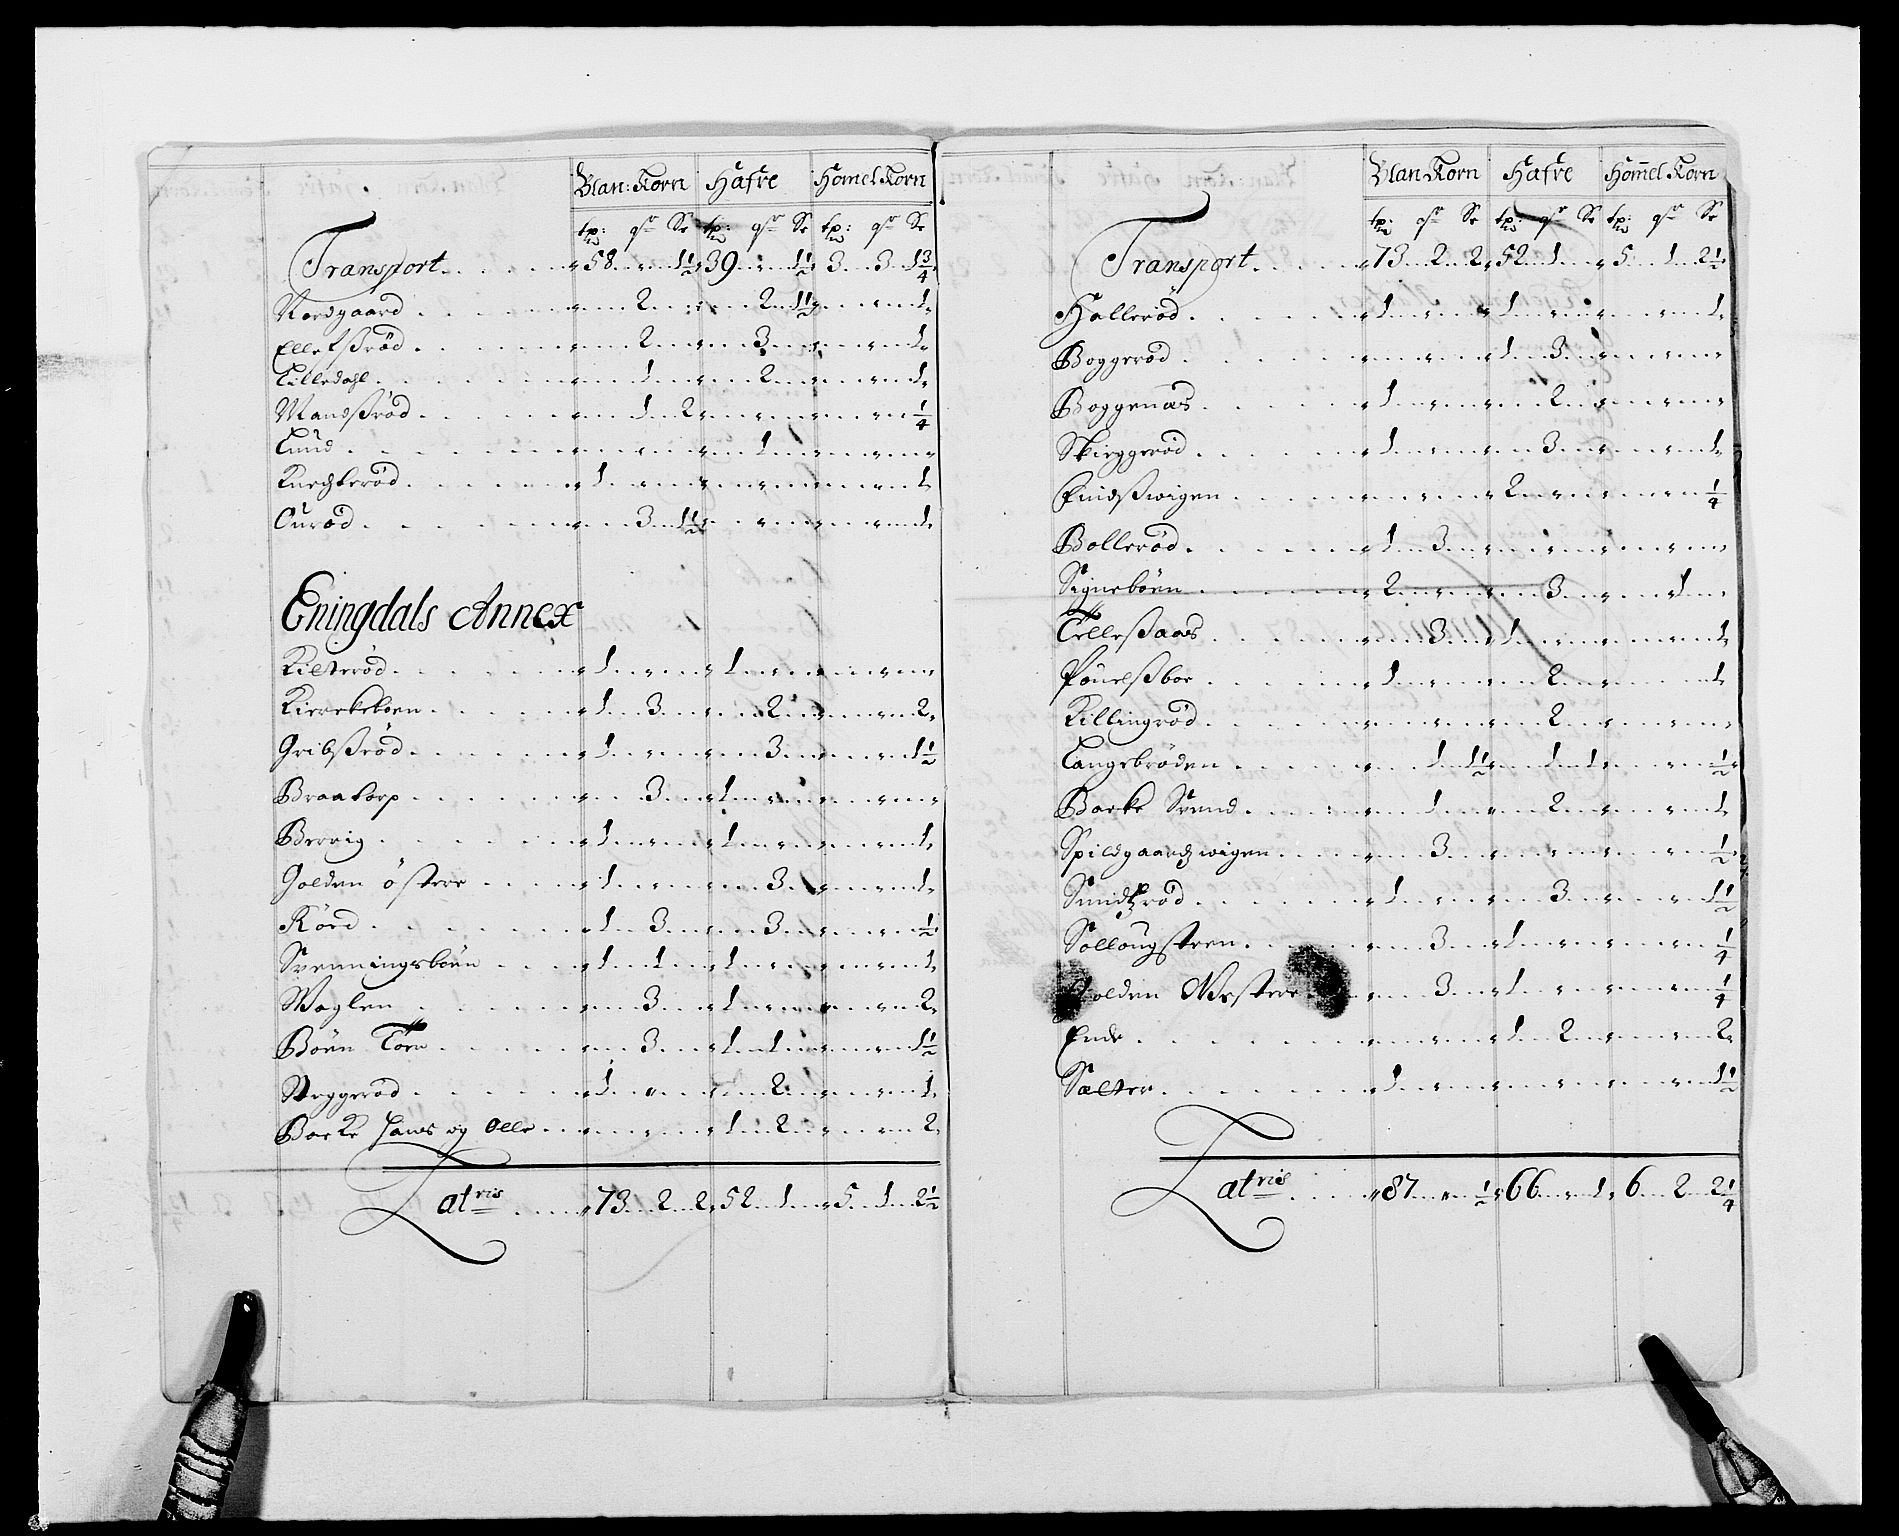 Blan: Korn Hafre Homel Korn
tp: qr Se tp: qr Se tp: qr Se
Transport. 58 " 1½ 39 " 1½ 3 3 1¾
Nordgaard " 2 " " 2 1½ " " 1
Ellefßrød " 2 " " 3 " " " 1
Lilledahl " 1 " " 2 " " " 1
Mandßrød " 1 2 " " " " " ¼
Lund " " " " 1 " " " "
Knechterød 1 " " " " " " " 1
Ourød " 3 1½ " " " " " 1
Eningdals Annex
Kilterød 1 " " 1 " " " " "
Kirrekeboen 1 3 " " 2 " " " 2
Gribßrød 1 " " " 3 " " " 1½
Braatorp " 3 " 1 " " " " "
Bervig 1 " " 1 " " " " 1
Holden östere 1 " " " 3 " " " 1
Körd 1 3 " " 3 " " " ½
Svenningsböen 1 1 " 1 " " " " 1
Waglen " 3 " 1 " " " " 2
Böen Torn " 3 " 1 1 " " " 1½
Steggerød 1 " " " 2 " " " 1
Boeke Hans og Olle " " " 1 2 " " " 2
Latris 73 2 2 52 1 " 5 1 2½
Blan Korn Hafre Hommel Korn
tp: qr Se tp: qr Se tp: qr Se
Transport 73 2 2 52 1 " 5 1 2½
Hallerød 1 " " 1 " " " " 1
Boggerød " " " 1 3 " " " "
Boggenæs 1 " " " 2 " " " "
Skieggerød 1 " " " 3 " " " 1
Findßwigen " " " 2 " " " " ¼
Bollerød 1 3 " " " " " " "
Signeböen 2 " " " 3 " " 1 "
Telleßaas " 3 " 1 " " " " 1
Pöuelßboe 1 " " " 2 " " " 1
Killingrød " " " " 2 " " " "
Langebröden " 1 1½ " 1 1 " " ½
Boeke Svend " 1 " " 2 " " " 1
Spildgaardzwigen " 3 " " " " " " ½
Sundtzrød 1 " " " 3 " " " 1½
Sollougsteen " 3 " 1 " " " " ¼
Holden Westere " 3 " 1 " " " " ¼
Ende " " " 1 2 " " " 2
Sælter 1 " " " " " " " 1½
Latris 87 " ½ 66 " 1 6 2 2¼